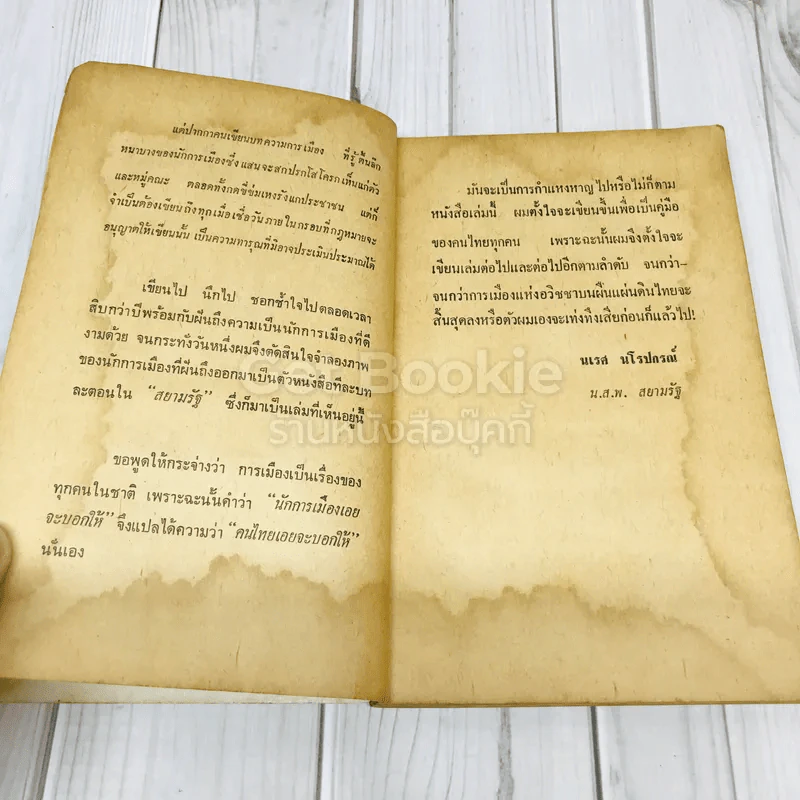 แต่ปากกาคนเขียนบทความการเมือง ที่รู้ตื้นลึก
หนาบางของนักการเมืองซึ่งแสนจะสกปรกโสโครกเห็นแก่ตัว
และหมู่คณะ ตลอดทั้งกดขี่ข่มเหงรังแกประชาชน แต่ก็
จำเป็นต้องเขียนถึงทุกเมื่อเชื่อวันภายในกรอบที่กฎหมายจะ
อนุญาตให้เขียนนั้น เป็นความทารุณที่มิอาจประเมินประมาณได้
เขียนไป นึกไป ชอกช้ำใจไปตลอดเวลา
สิบกว่าปีพร้อมกับฝันถึงความเป็นนักการเมืองที่ดี
งามด้วย จนกระทั่งวันหนึ่งผมจึงตัดสินใจจำลองภาพ
ของนักการเมืองที่ฝันถึงออกมาเป็นตัวหนังสือทีละบท
ละตอนใน “สยามรัฐ” ซึ่งก็มาเป็นเล่มที่เห็นอยู่นี้
ขอพูดให้กระจ่างว่า การเมืองเป็นเรื่องของ
ทุกคนในชาติ เพราะฉะนั้นคำว่า “นักการเมืองเอย
จะบอกให้” จึงแปลได้ความว่า “คนไทยเอยจะบอกให้”
นั่นเอง
มันจะเป็นการกำแหงหาญไปหรือไม่ก็ตาม
หนังสือเล่มนี้ ผมตั้งใจจะเขียนขึ้นเพื่อเป็นคู่มือ
ของคนไทยทุกคน เพราะฉะนั้นผมจึงตั้งใจจะ
เขียนเล่มต่อไปและต่อไปอีกตามลำดับ จนกว่า–
จนกว่าการเมืองแห่งอวิชชาบนผืนแผ่นดินไทยจะ
สิ้นสุดลงหรือตัวผมเองจะเท่งทึงเสียก่อนก็แล้วไป!
นเรศ นโรปกรณ์
น.ส.พ. สยามรัฐ
Get Bookie
ร้านหนังสือบุ๊คกี้